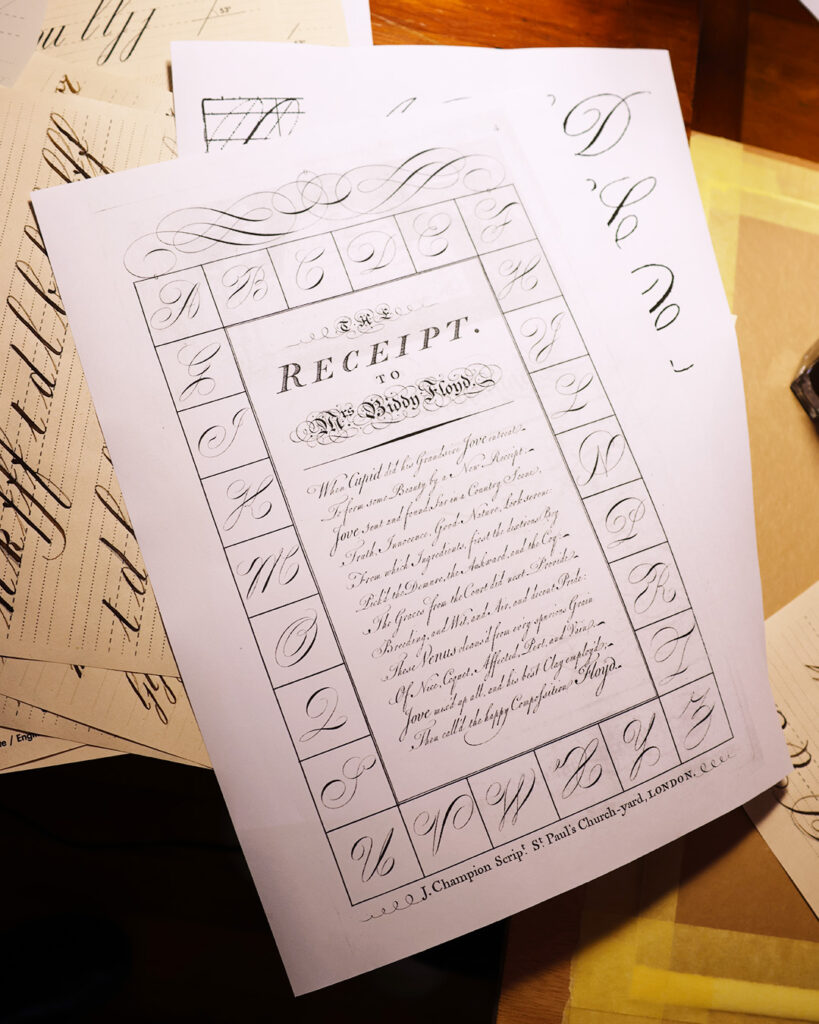 A B C D E F
G H
I J
K L
M N
O P
Q R
S T
U V W X Y Z
THE
RECEIPT.
TO
Mrs Biddy Floyd.
When Cupid did his Grandsire Jove intreat
To form some Beauty by a New Receipt.
Jove sent and found far in a Country Scene,
Truth, Innocence, Good Nature, Look serene.
From which Ingredients, first the dextrous Boy
Pick'd the Demure, the Aukward, and the Coy.
The Graces from the Court did next Provide
Breeding, and Wit, and Air, and decent Pride:
These Venus cleans'd from every spurious Grain
Of Nice, Coquet, Affected, Pert, and Vain.
Jove mix'd up all, and his best Clay employ'd,
Then call'd the happy Composition Floyd.
J. Champion Scrip.t St Paul's Church-yard, LONDON.
D
53°